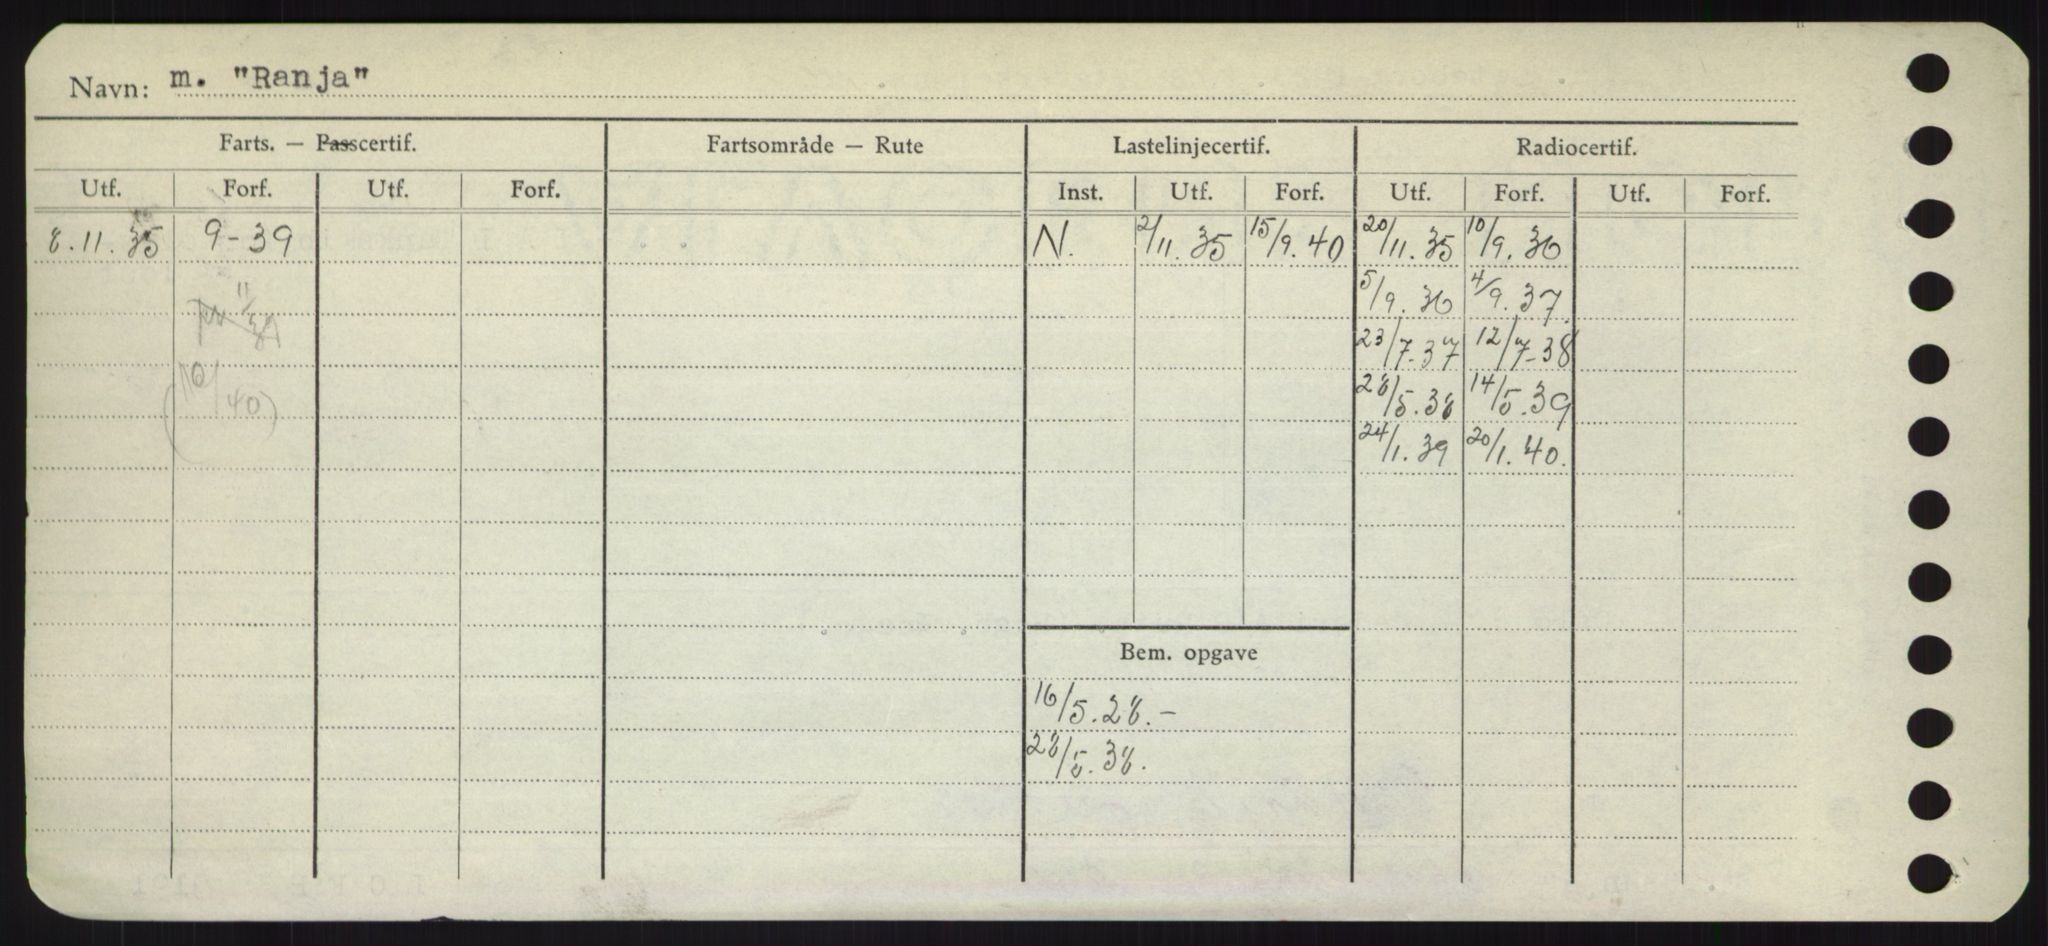 Navn: m. "Ranja"
Farts. — Passcertif. Fartsområde — Rute Lastelinjecertif. Radiocertif.
Utf. Forf. Utf. Forf. Inst. Utf. Forf. Utf. Forf. Utf. Forf.
8.11.35 9-39 N. 2/11.35 15/9.40 20/11.35 10/9.36
5/9.36 4/9.37
23/7-37 12/7-38
(10/40) 28/5.38 14/5.39
24/1.39 20/1.40.
Bem. opgave
16/5.28.-
28/5.38.